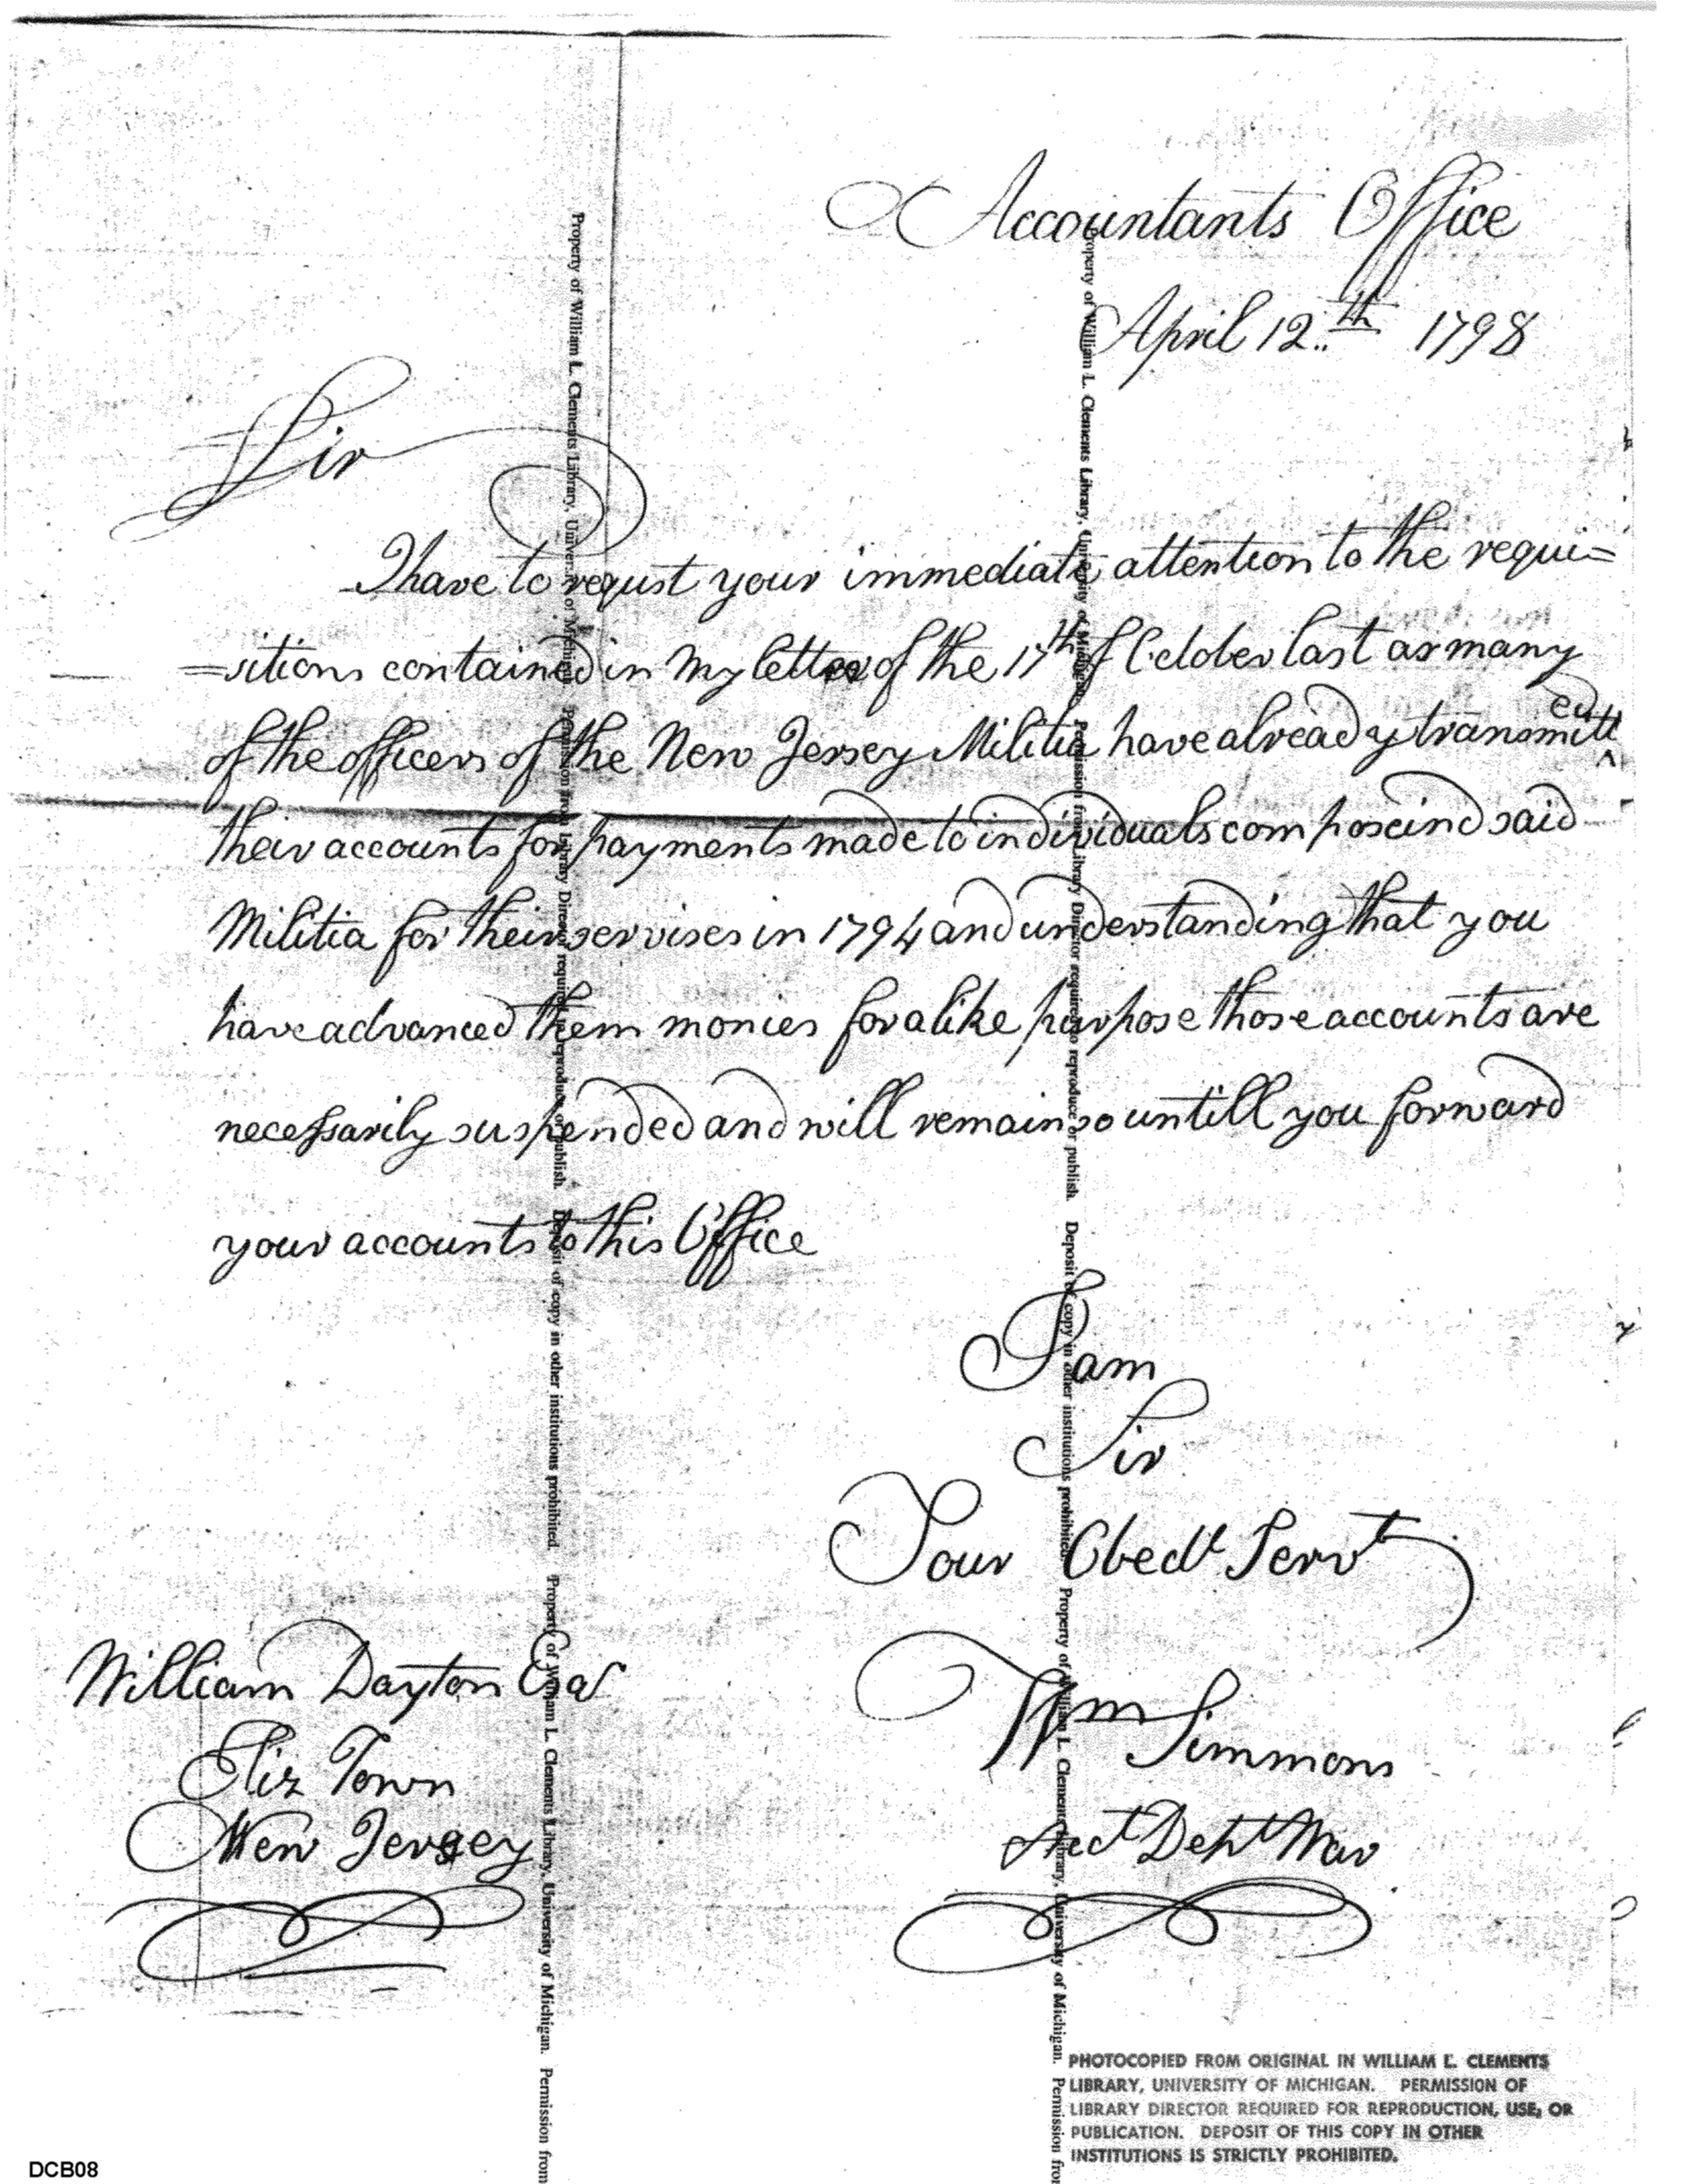 Accountants Office
April 12th 1798
Sir
I have to requst your immediate attention to the requi=
=sitions contained in my letter of the 17th of October last as many
of the officers of the New Jersey Militia have already transmitted
their accounts for payments made to individuals composeind said
Militia for their servises in 1794 and understanding that you
have advanced them monies for alike purpose those accounts are
necessarily suspended and will remain so untill you forward
your accounts to this Office
I am
Sir
Your Obedt Servt
Wm Simmons
Acct Dept War
William Dayton Esq
Eliz Town
New Jersey
Property of William L. Clements Library, University of Michigan. Permission from Library Director required to reproduce or publish. Deposit of copy in other institutions prohibited. Property of William L. Clements Library, University of Michigan. Permission from
Property of William L. Clements Library, University of Michigan. Permission from Library Director required to reproduce or publish. Deposit of copy in other institutions prohibited. Property of William L. Clements Library, University of Michigan. Permission from
PHOTOCOPIED FROM ORIGINAL IN WILLIAM L. CLEMENTS
LIBRARY, UNIVERSITY OF MICHIGAN. PERMISSION OF
LIBRARY DIRECTOR REQUIRED FOR REPRODUCTION, USE, OR
PUBLICATION. DEPOSIT OF THIS COPY IN OTHER
INSTITUTIONS IS STRICTLY PROHIBITED.
DCB08